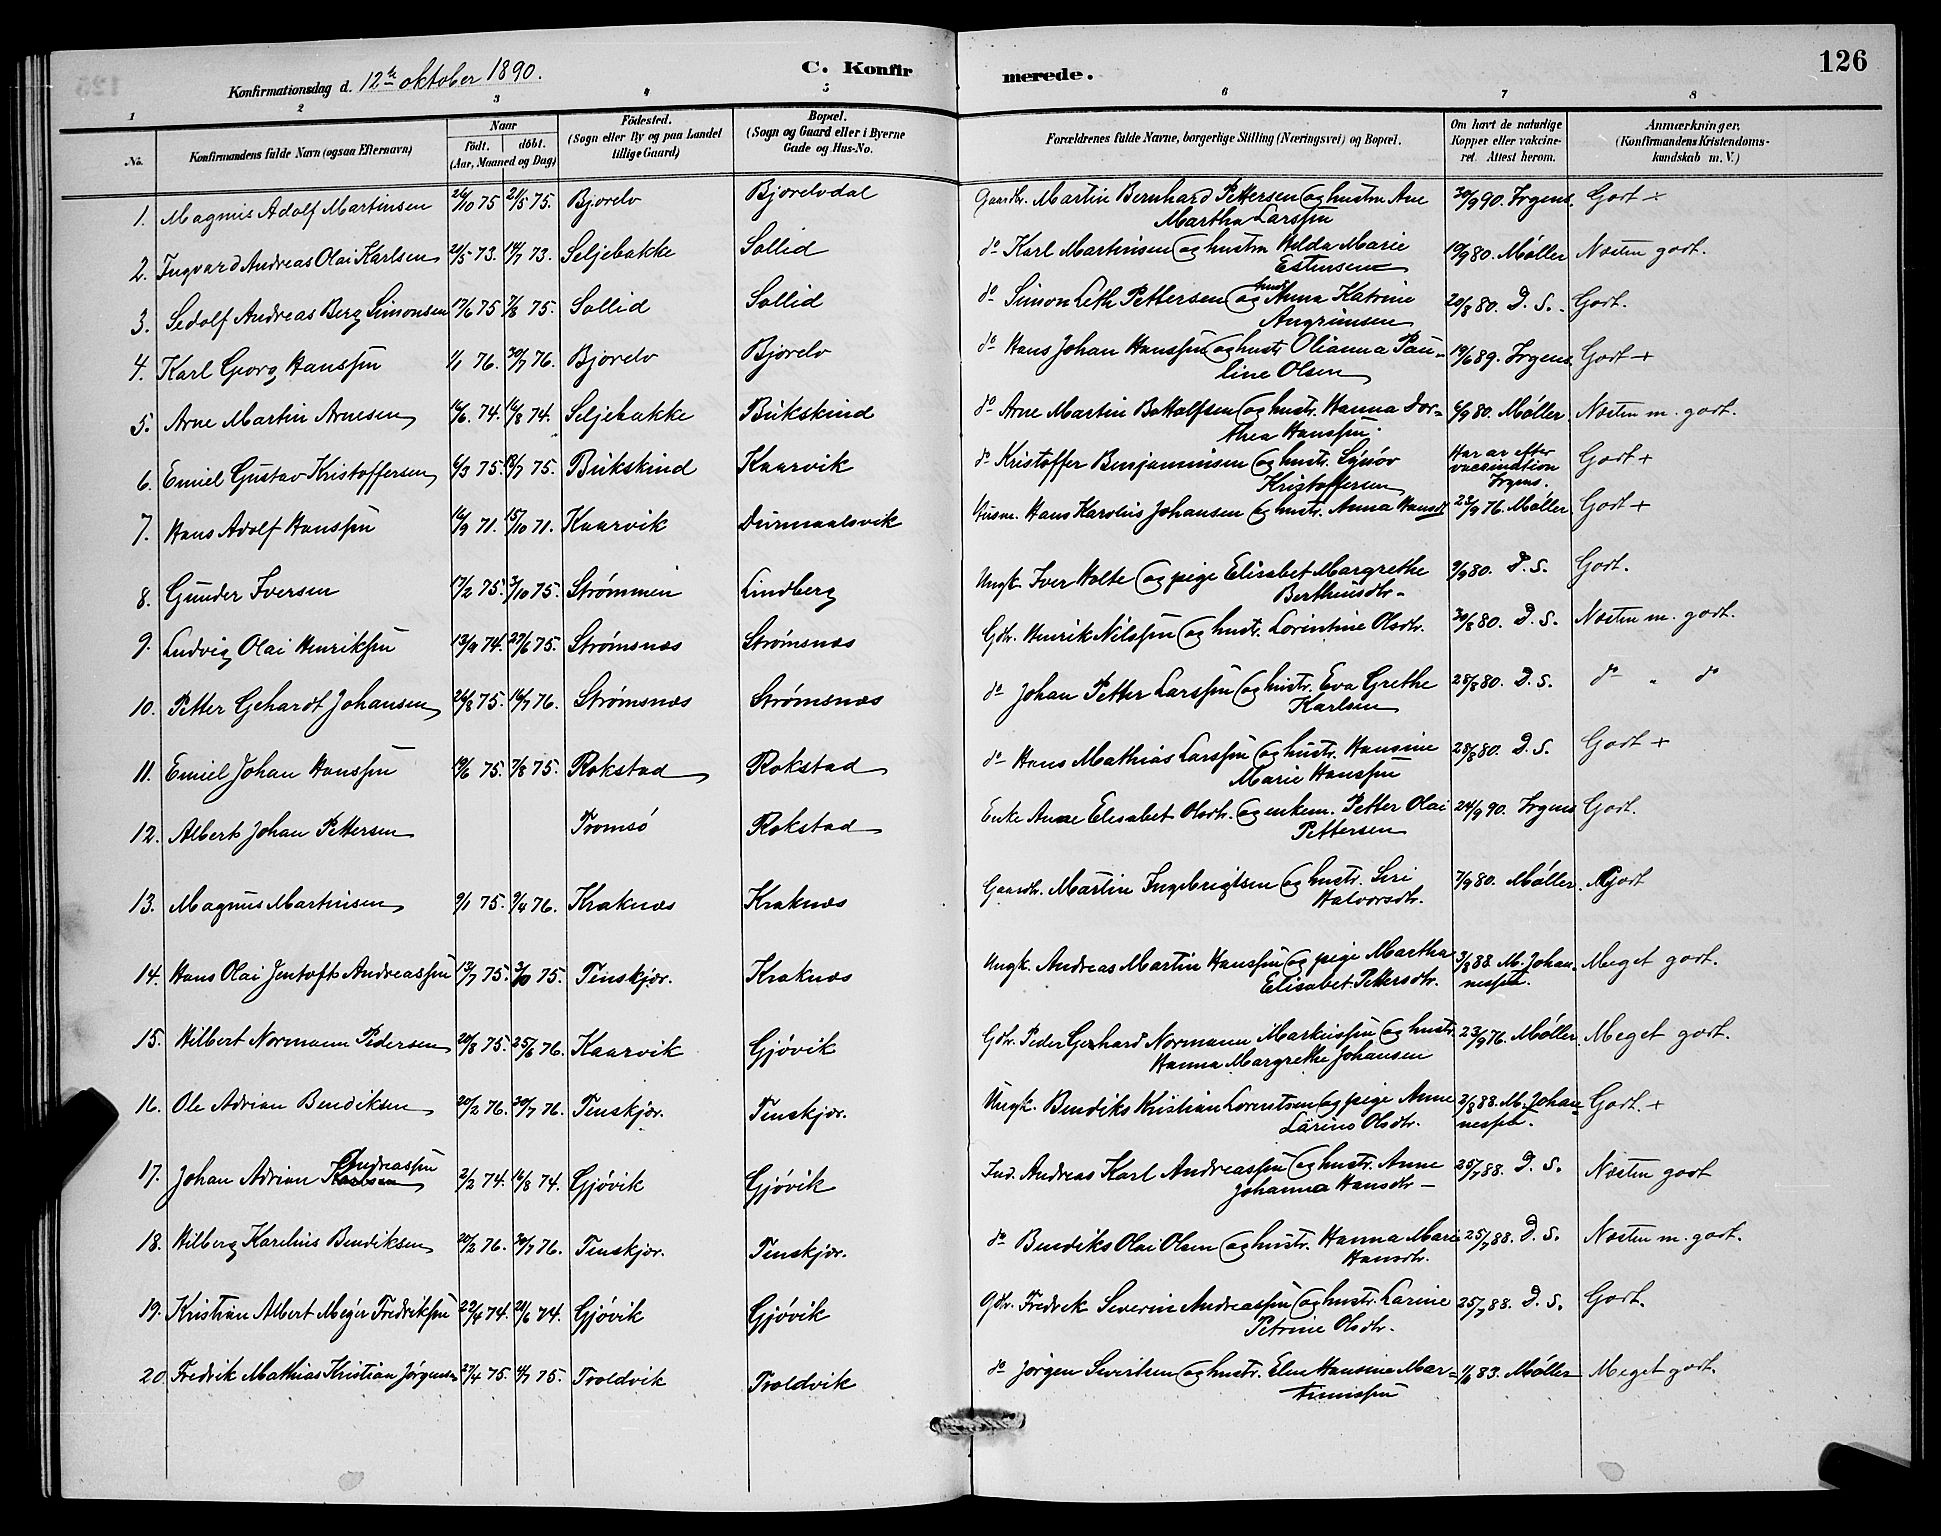 126
C. Konfirmerede.
Konfirmationsdag d. 12te oktober 1890.
1 2 3 4 5 6 7 8
No. Konfirmandens fulde Navn (ogsaa Efternavn) Naar födt. döbt. (Aar, Maaned og Dag) Födested. (Sogn eller By og paa Landet tillige Gaard) Bopæl. (Sogn og Gaard eller i Byerne Gade og Hus-No. Forældrenes fulde Navne, borgerlige Stilling (Næringsvei) og Bopæl. Om havt de naturlige Kopper eller vakcineret. Attest herom. Anmærkninger. (Konfirmandens Kristendomskundskab m. V.)
1. Magnus Adolf Martinsen 26/10 75 21/5 75. Bjorelv Bjorelvdal Gaardbr. Martin Bernhard Pettersen og hustru Ane 30/9 90. Irgens. Godt +
Martha Larssen
2. Ingvard Andreas Olai Karlsen 21/5 73. 14/7 73. Seljebakke Sollid do Karl Martinsen og hustru Hilda Marie 19/9 80. Møller Næsten godt.
Estensen
3. Sedolf Andreas Berg Simonsen 17/6 75 7/8 75. Sollid Sollid do Simon Leth Pettersen og hust. Anna Katrine 20/8 80. D. S. Godt.
Angrimsen
4. Karl Georg Hanssen 1/1 76. 30/7 76. Bjorelv Bjorelv do Hans Johan Hanssen og hustr. Olianna Pau- 19/6 89. Irgens. Godt +
line Olsen
5. Arne Martin Arnesen 16/6. 74. 16/8 74. Seljebakke Bukskind do Arne Martin Bottolfsen og hustr. Hanna Dor- 6/9 80. Møller Næsten m. godt.
thea Hanssen.
6. Emiel Gustav Kristoffersen 6/3 75. 18/7 75. Bukskind Kaarvik do Kristoffer Benjaminsen og hustr. Synöv Har ar efter vaccination Irgens. Godt +
Kristoffersen
7. Hans Adolf Hanssen 16/9 71. 15/10 71. Kaarvik Durmaalsvik Husm. Hans Karolius Johansen og hustr. Anna Hansdt 23/9 76. Møller Godt +
8. Gunder Iversen 17/2 75. 3/10 75. Strømmen Lindberg Ungk. Iver Holte og pige Elisabet Margrethe 9/9 80. D. S. Godt.
Berthinsdtr.
9. Ludvig Olai Henriksen 13/9 74. 27/6 75. Strømsnæs Strømsnæs Gdr. Henrik Nilssen og hustr. Lorintine Olsdtr. 30/8 80. D. S. Næsten m. godt.
10. Petter Gehardt Johansen 26/8 75. 16/7 76. Strømsnæs Strømsnæs do Johan Petter Larssen og hustr. Eva Grethe 28/8 80. D. S. do " do
Karlsen
11. Emiel Johan Hanssen 19/6 75. 7/8 75. Rokstad Rokstad do Hans Mathias Larssen og hustr. Hansine 28/8 80. D. S. Godt +
Marie Hanssen
12. Albert Johan Pettersen Tromsö Rokstad Enke Anne Elesabet Olsdtr. og enkem. Petter Olai 24/9 90. Irgens Godt.
Pettersen
13. Magnus Martinsen 9/1 75. 9/4 76. Kraknæs Kraknæs Gaardbr. Martin Ingebrigtsen og hustr. Seri 7/9 80. Møller Godt
Halvorsdtr.
14. Hans Olai Jentoft Andreassen 13/7 75. 3/10 75. Tenskjær. Kraknæs Ungk. Andreas Martin Hanssen og pige Martha 3/8 88. M. Johan- Meget godt.
Elisabet Pettersdtr. nessen.
15. Hilbert Normann Pedersen 20/8 75. 25/6 76. Kaarvik Gjövik Gdr. Peder Gerhard Normann Markussen og hustr. 23/9 76. Møller Meget godt.
Hanna Margrethe Johansen
16. Ole Adrian Bendiksen 20/2 76. 30/7 76. Tenskjær. Tenskjær. Ungk. Bendiks Kristian Lorentsen og pige Anne 2/8 88. M. Johan- Godt. +
Larine Olsdtr. nessen.
17. Johan Adrian Karlsen Andreassen 2/2 74. 16/8 74. Gjövik Gjövik Ind. Andreas Karl Andreassen og hustr. Anne 25/7 88. D. S. Næsten godt
Johanna Hansdtr
18. Hilberg Karelius Bendiksen 20/2 76. 30/7 76. Tenskjær. Tenskjær. do Bendiks Olai Olsen og hustr. Hanna Marie 25/7 88. D. S. Næsten m. godt.
Hansdtr.
19. Kristian Albert Mejer Fredriksen 22/4 74. 21/6 74. Gjövik Gjövik Gdr. Fredrek Severin Andreassen og hustr. Larine 25/7 88. D. S. Godt.
Petrine Olsdtr.
20. Fredrik Mathias Kristian Jörgensen 27/4 75. 4/7 75. Troldvik Troldvik do Jörgen Sivertsen og hustr. Elen Hansine Mar- 83. Møller Meget godt.
tinussen